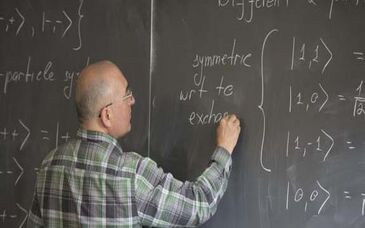 Different
|-, -⟩ }
-particle sy
symmetric
wrt to
exchan
{ |1, 1⟩ =
|1, 0⟩ = 1/√2
|1, -1⟩ =
|0, 0⟩ =
+⟩
+ +⟩
- +⟩
+⟩